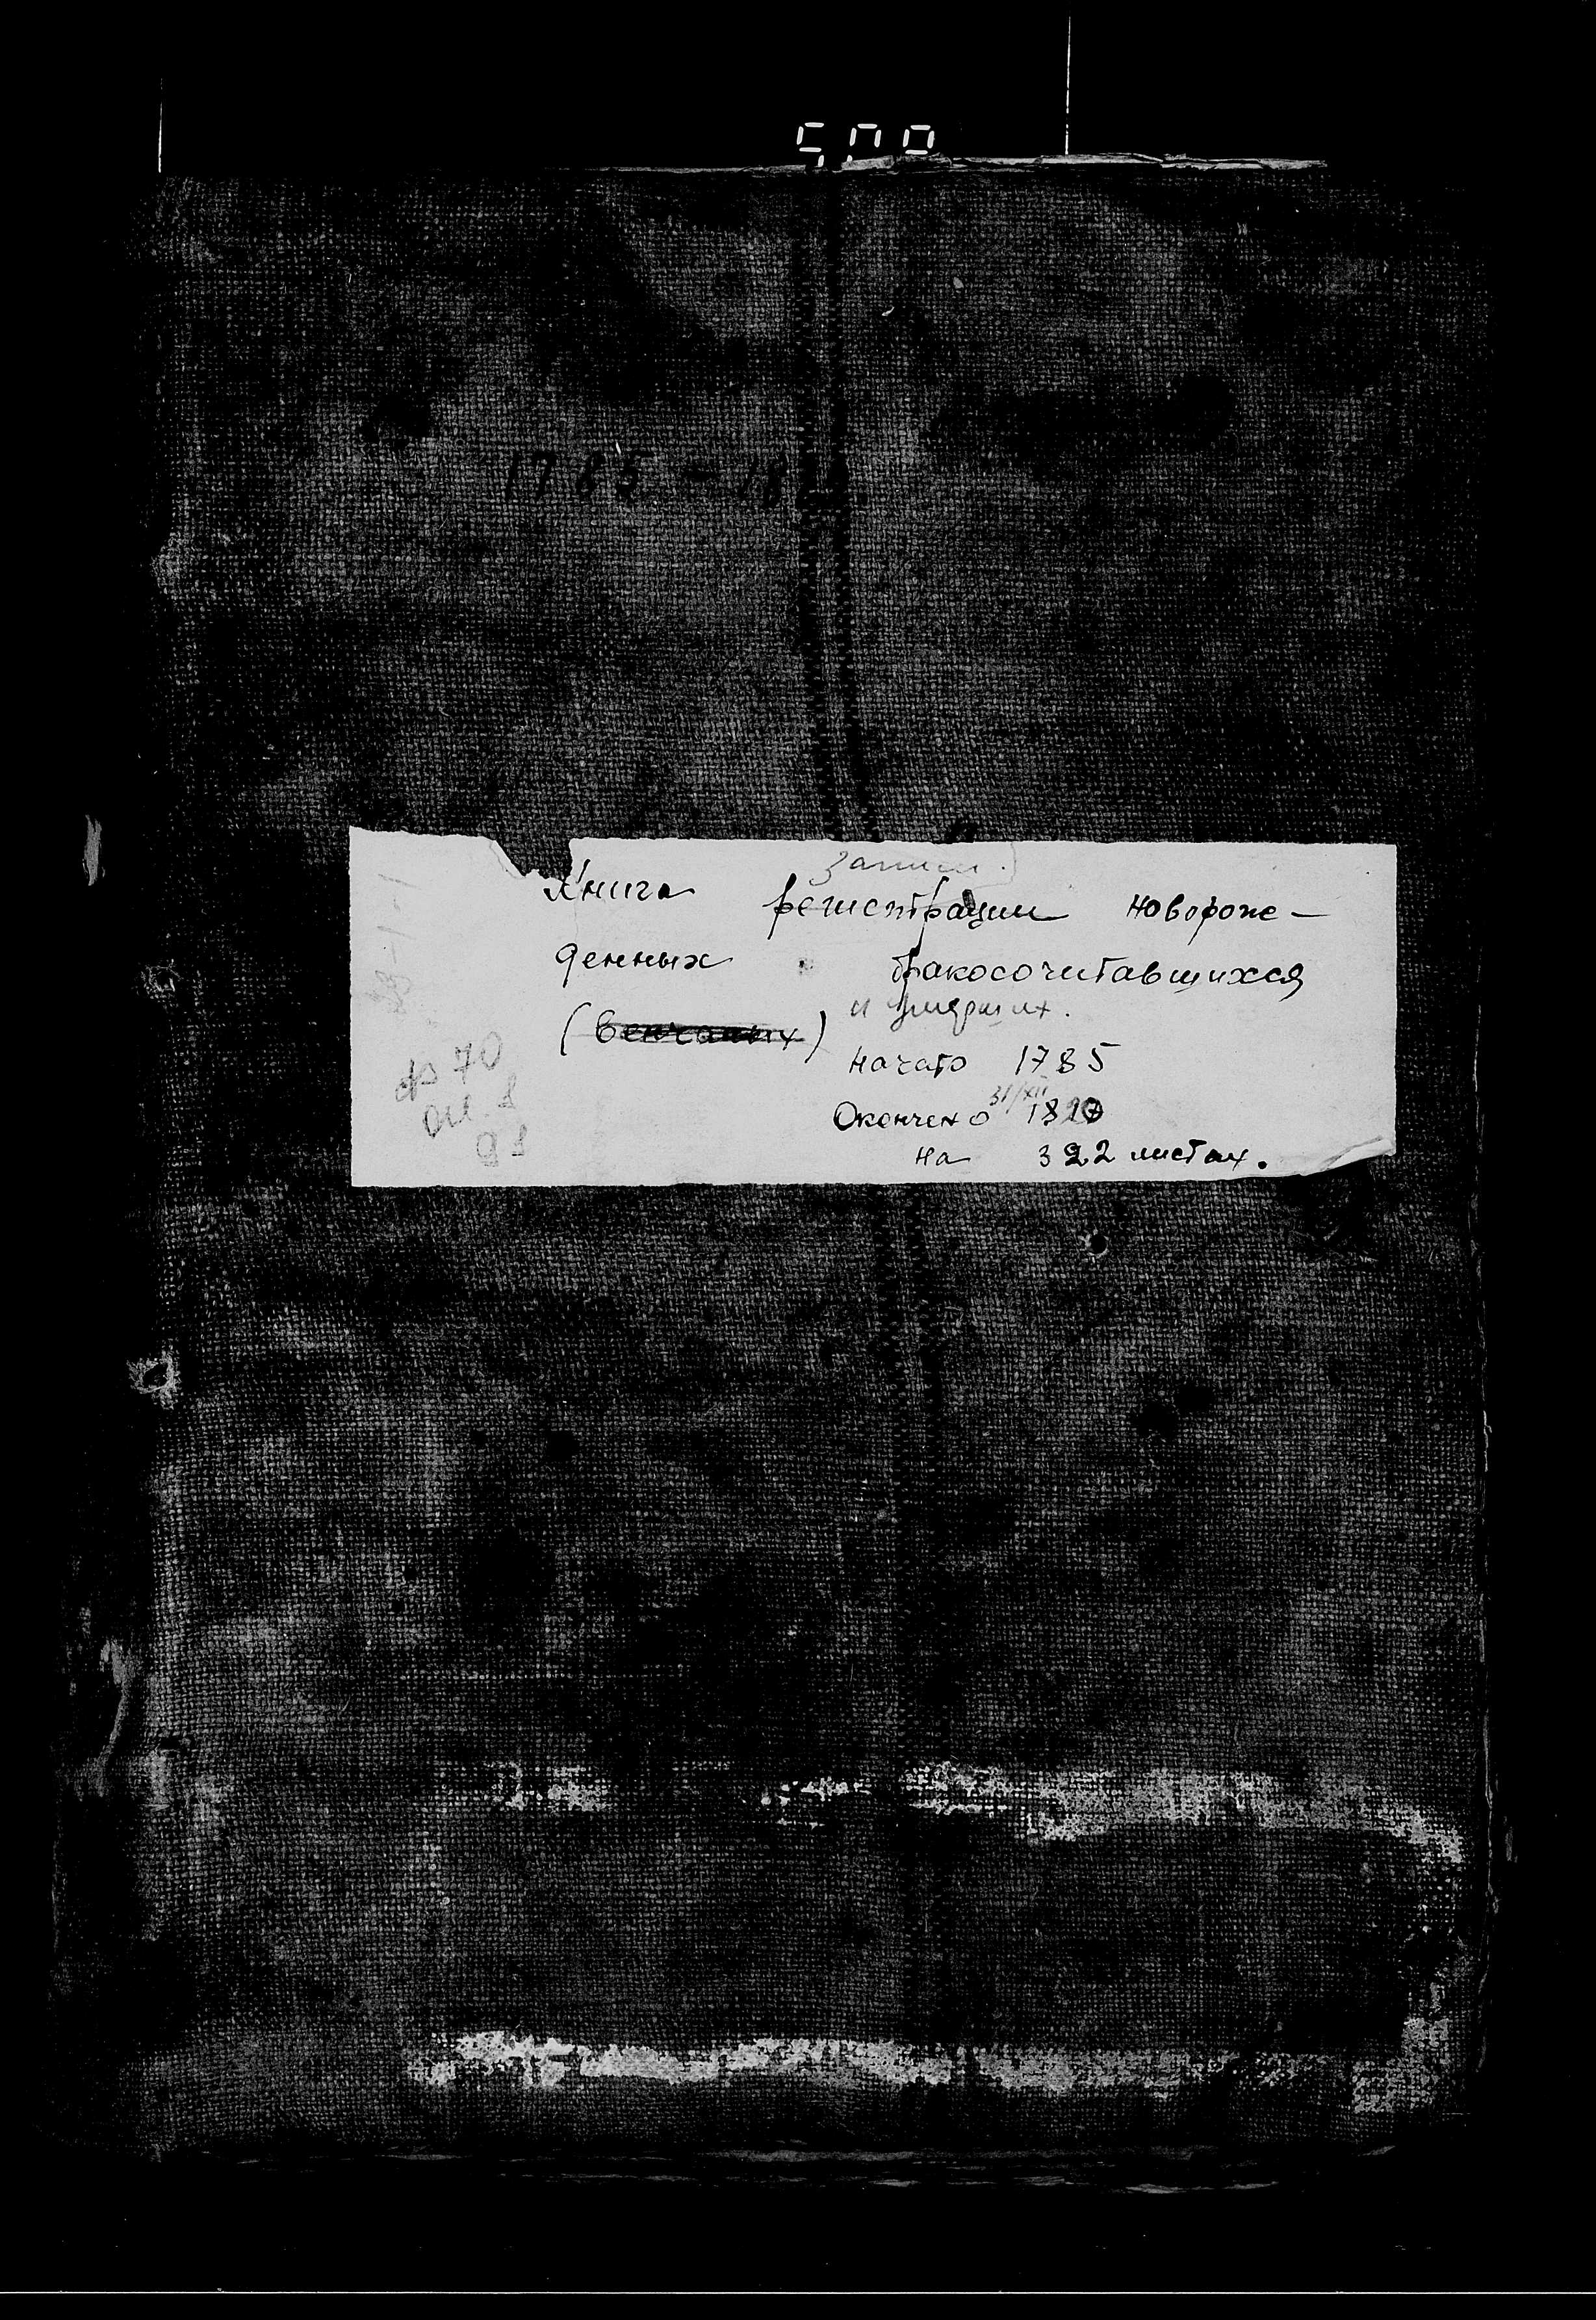 1785 - 18
записи.
Книга регистрации новорож-
денных бракосочитавшихся
и умерших.
(венчаных)
начато 1785
31/XII
Окончено 1820
на 322 листах.
ф 70
оп. 1
д 1